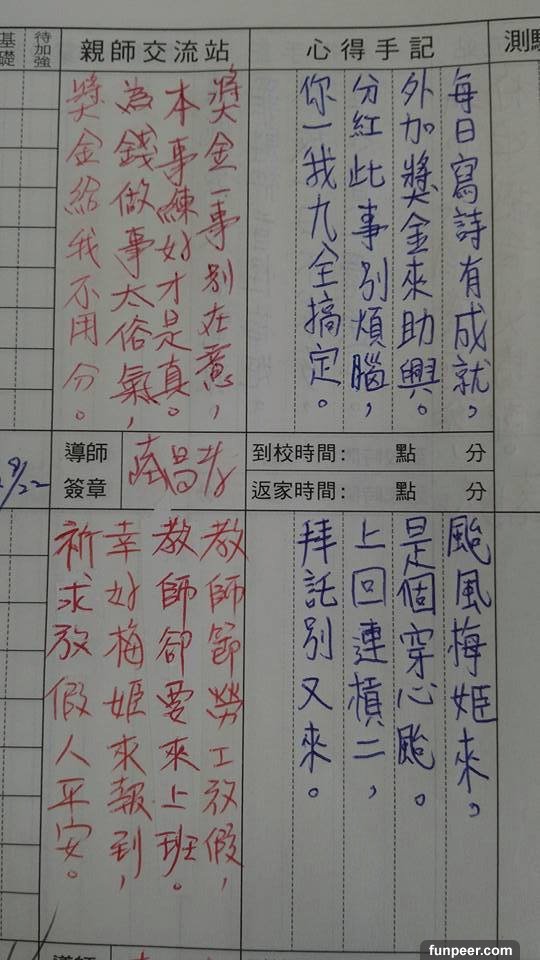 基礎
待加強
親師交流站
心得手記
測
每日寫詩有成就。
外加獎金來助興。
分紅此事別煩腦，
你一我九全搞定。
獎金一事別在意，
本事練好才是真。
為錢做事太俗氣，
獎金給我不用分。
9/22
導師
簽章
到校時間： 點 分
返家時間： 點 分
颱風梅姬來。
是個穿心颱。
上回連槓二，
拜託別又來。
教師節勞工放假，
教師卻要來上班。
幸好梅姬來報到，
祈求放假人平安。
導師
funpeer.com